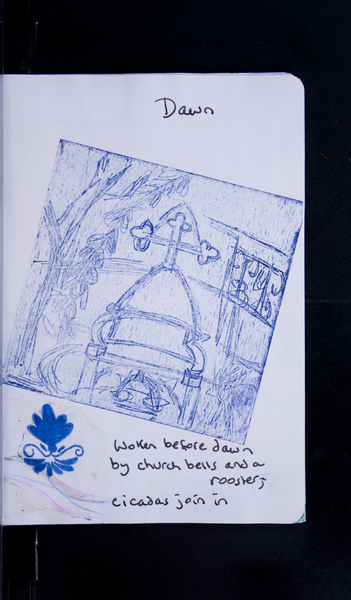 Dawn
Woken before dawn
by church bells and a
rooster;
cicadas join in